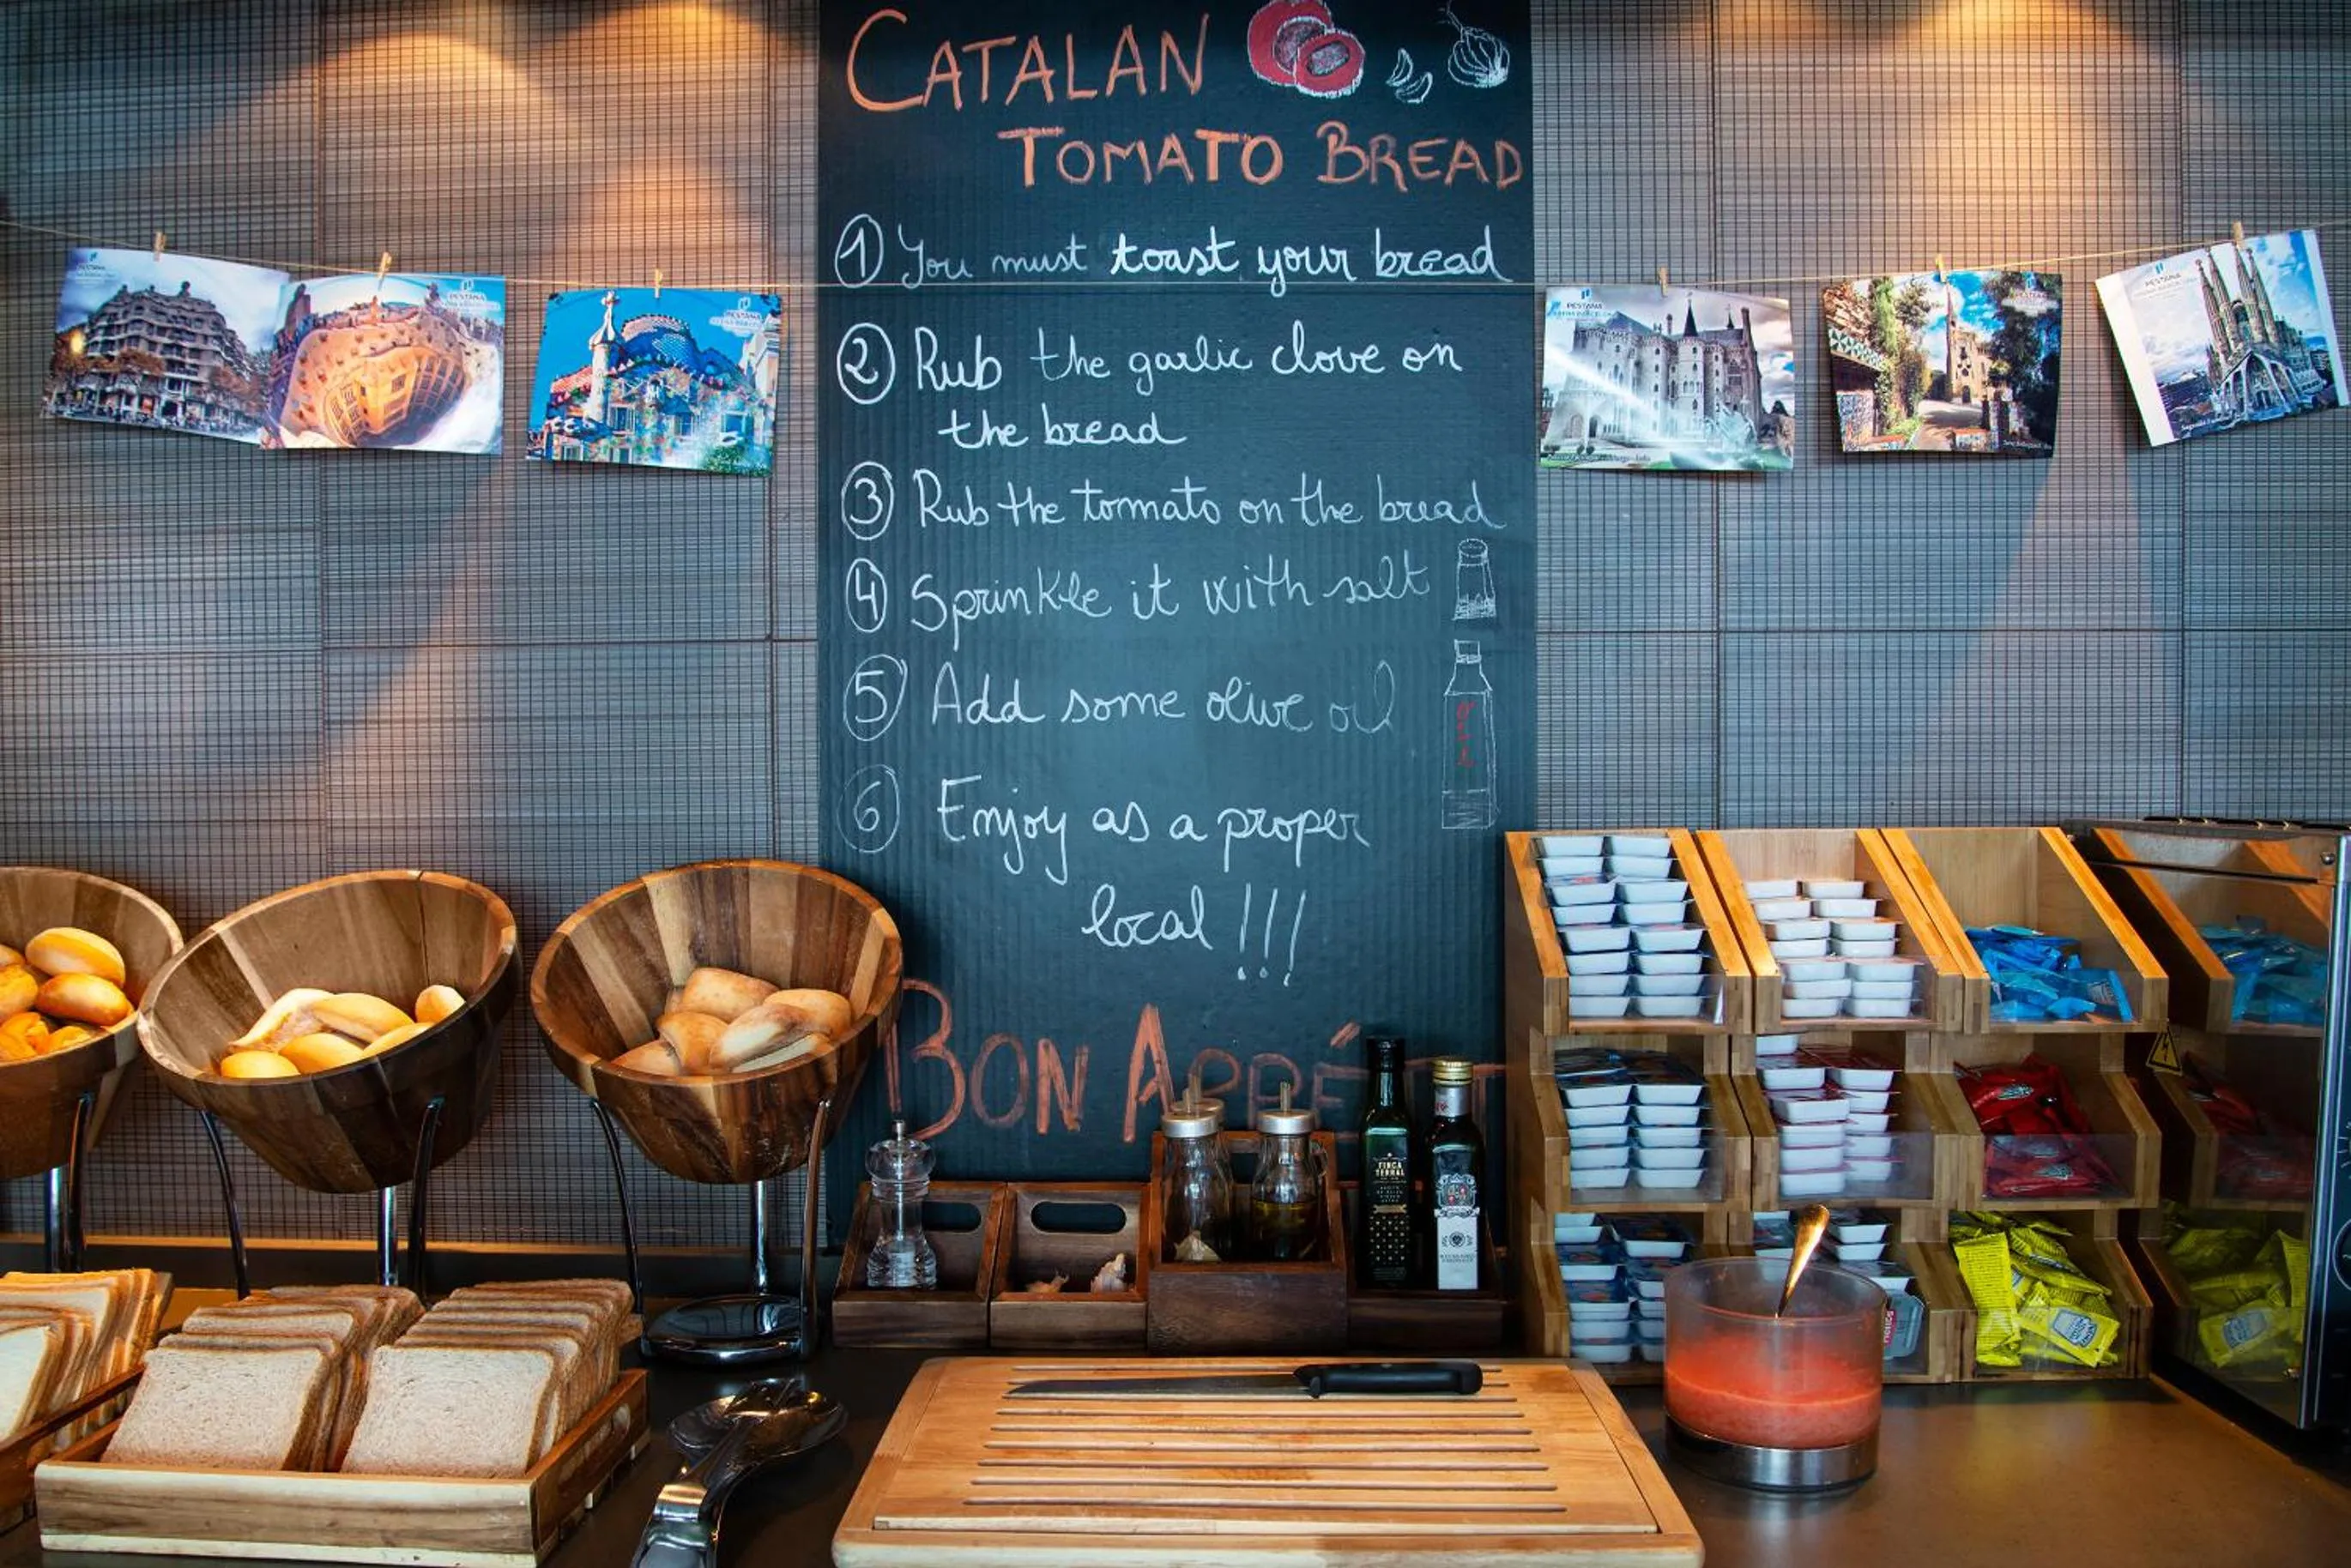 CATALAN
TOMATO BREAD
1 You must toast your bread
2 Rub the garlic clove on
the bread
3 Rub the tomato on the bread
4 Sprinkle it with salt
5 Add some olive oil
6 Enjoy as a proper
local !!!
BON APPÉTIT
PESTANA
PESTANA
PESTANA
PESTANA
PESTANA
FINCA
TERRAL